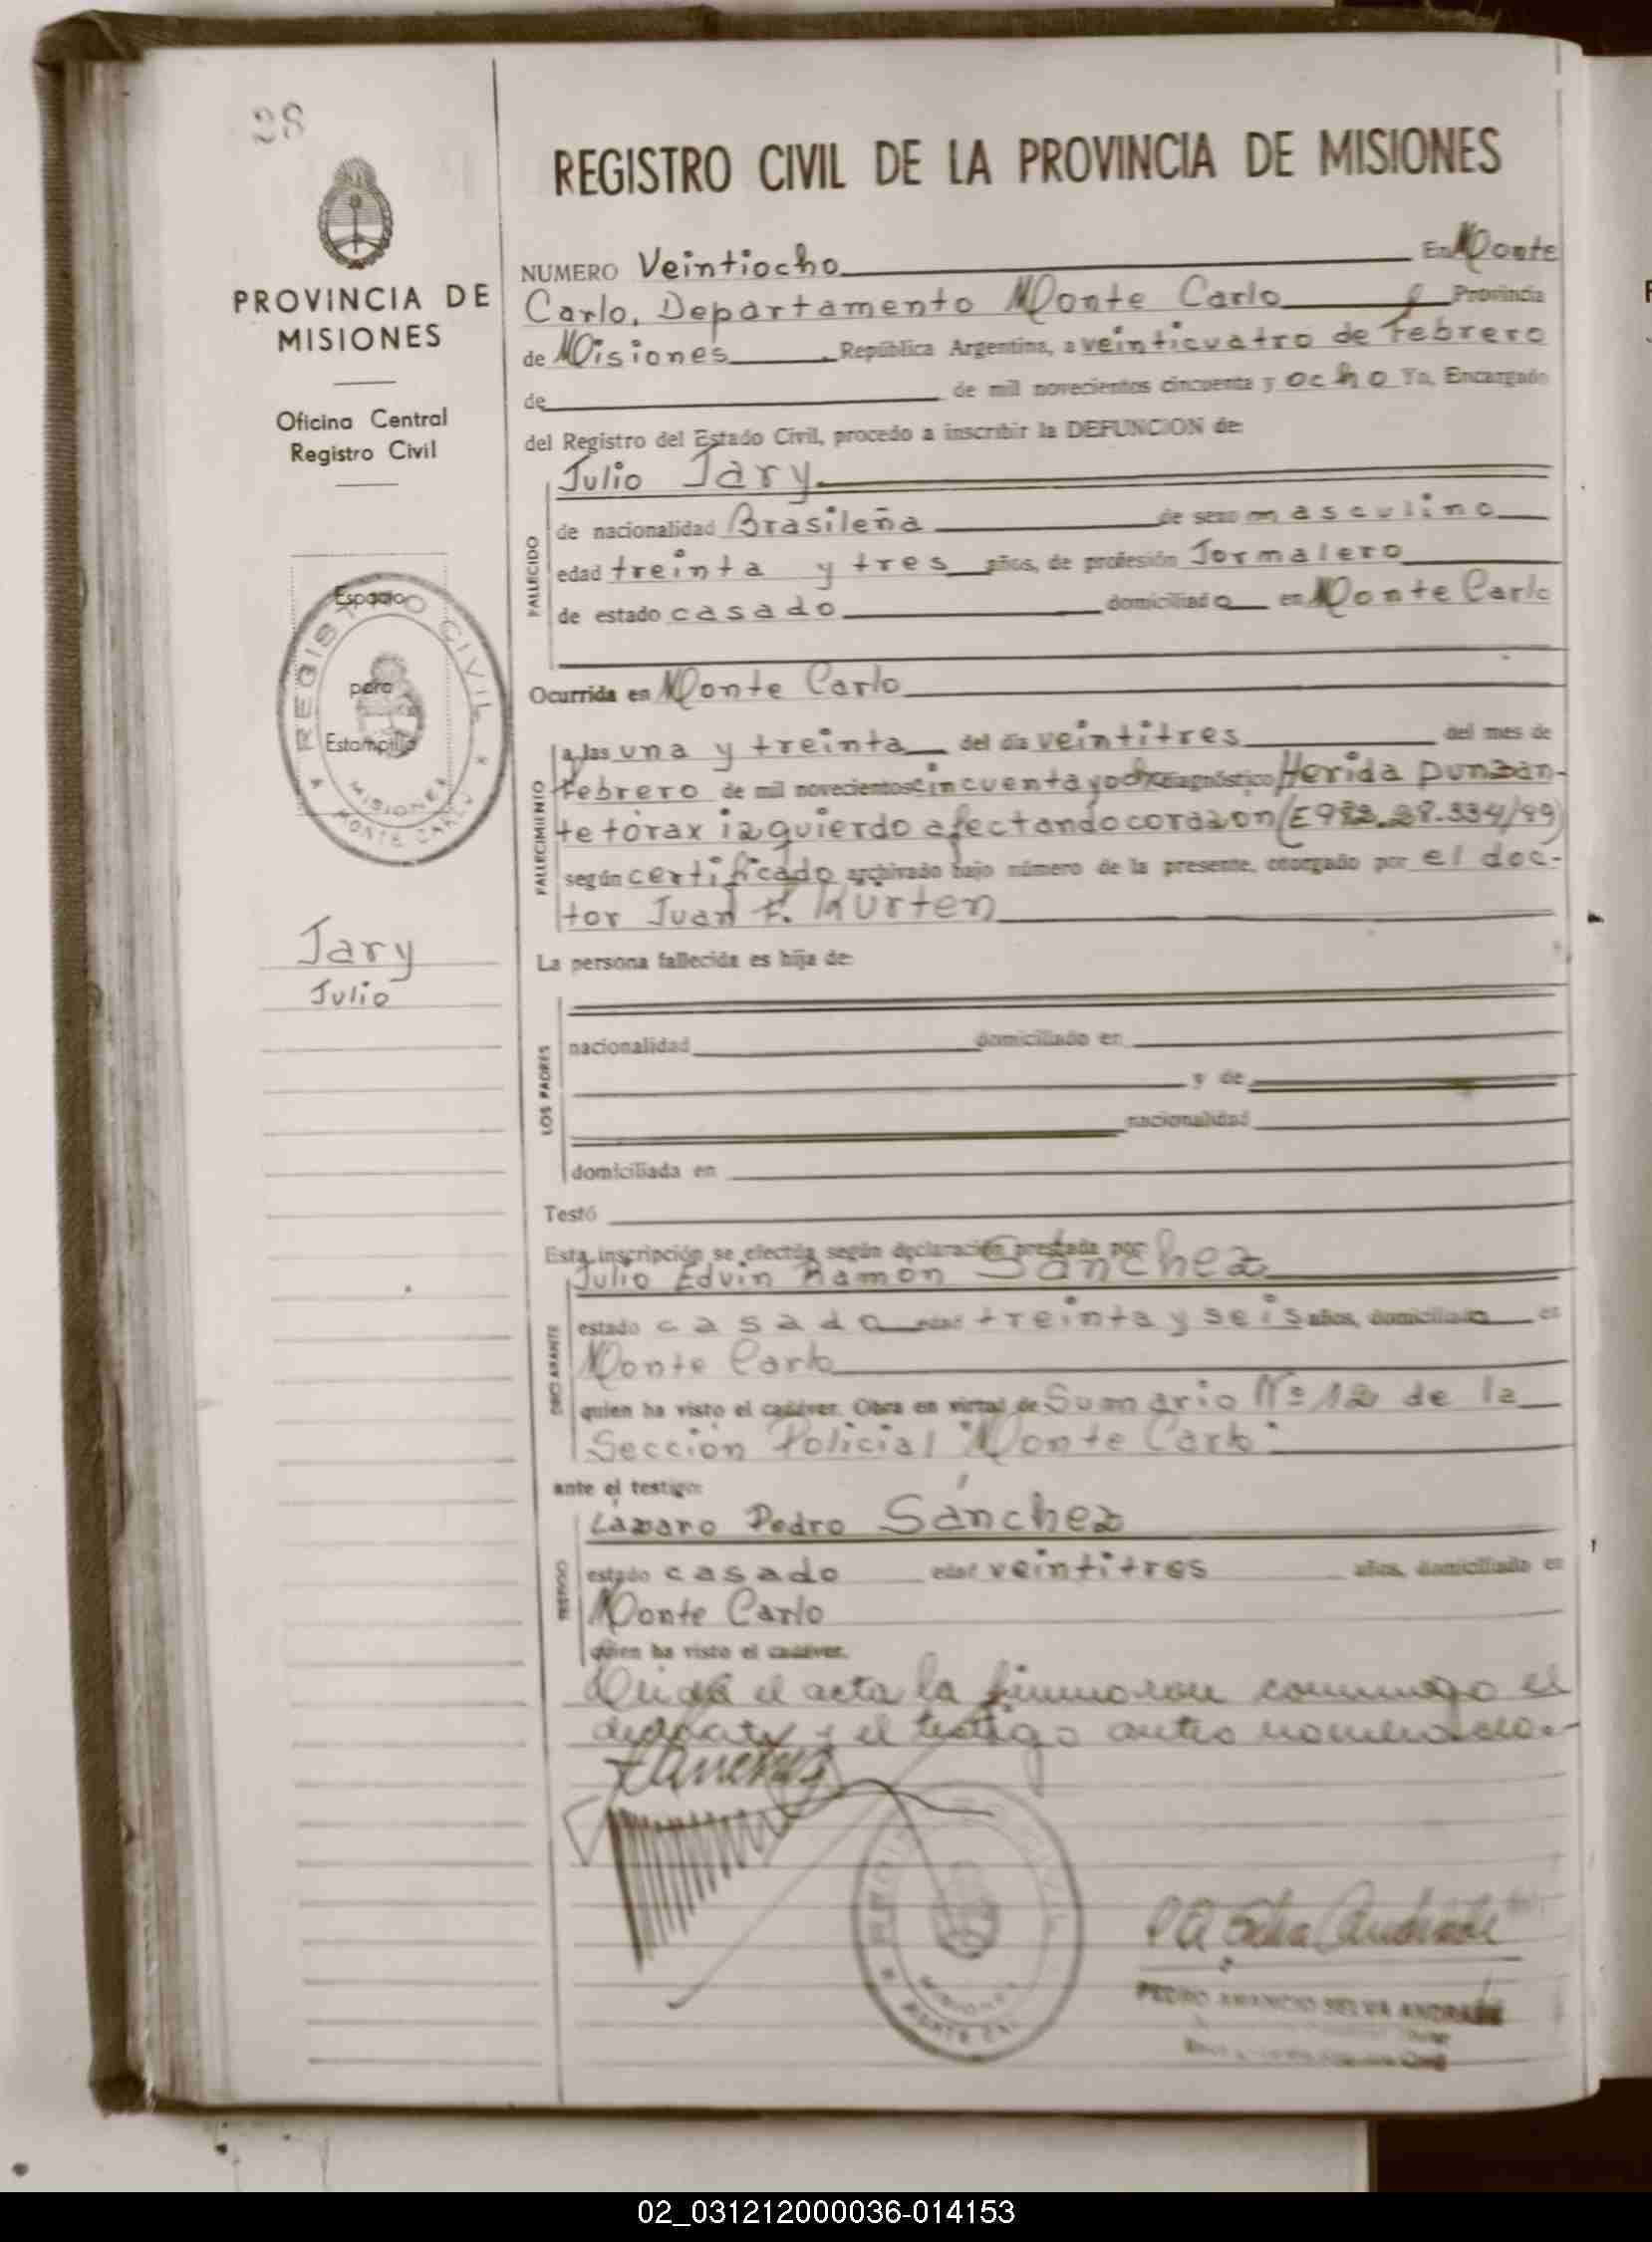 28
PROVINCIA DE
MISIONES
Oficina Central
Registro Civil
Espacio
para
Estampilla
REGISTRO CIVIL
MISIONES
MONTE CARLO
Jary
Julio
REGISTRO CIVIL DE LA PROVINCIA DE MISIONES
NUMERO Veintiocho En Monte
Carlo, Departamento Monte Carlo Provincia
de Misiones República Argentina, a veinticuatro de Febrero
de de mil novecientos cincuenta y ocho Yo, Encargado
del Registro del Estado Civil, procedo a inscribir la DEFUNCION de:
FALLECIDO
Julio Jary
de nacionalidad Brasileña de sexo masculino
edad treinta y tres años, de profesión Jornalero
de estado casado domiciliado en Monte Carlo
Ocurrida en Monte Carlo
FALLECIMIENTO
a las una y treinta del día veintitres del mes de
Febrero de mil novecientos cincuenta y ocho diagnóstico Herida punzan-
te tórax izquierdo afectando corazón (E982.28.334/99)
según certificado archivado bajo número de la presente, otorgado por el doc-
tor Juan F. Kurten
La persona fallecida es hija de:
LOS PADRES
nacionalidad domiciliado en
y de
nacionalidad
domiciliada en
Testó
Esta inscripción se efectúa según declaración prestada por:
DECLARANTE
Julio Edvin Ramón Sánchez
estado casado edad treinta y seis años, domiciliado en
Monte Carlo
quien ha visto el cadáver. Obra en virtud de Sumario Nº 12 de la
Sección Policial "Monte Carlo"
ante el testigo:
TESTIGO
Lázaro Pedro Sánchez
estado casado edad veintitres años, domiciliado en
Monte Carlo
quien ha visto el cadáver.
el acta la firmaron conmigo el
y el testigo antes nombrado.-
Sanchez
MISIONES
P A Selva Andrade
PEDRO AMANCIO SELVA ANDRADE
02_031212000036-014153